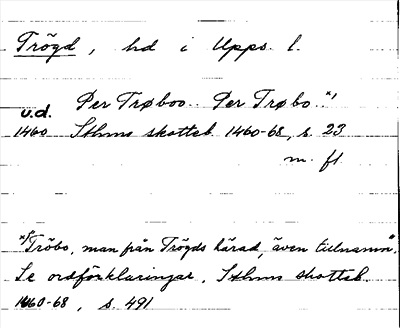 Trögd, hd i Upps. l.
u.d. Per Trøboo.. Per Trøbo..*)
1460 Sthms skotteb. 1460-68, s. 23
m. fl.
*) "Tröbo, man från Trögds härad, även tillnamn".
Se ordförklaringar, Sthms skotteb.
1460-68, s. 491